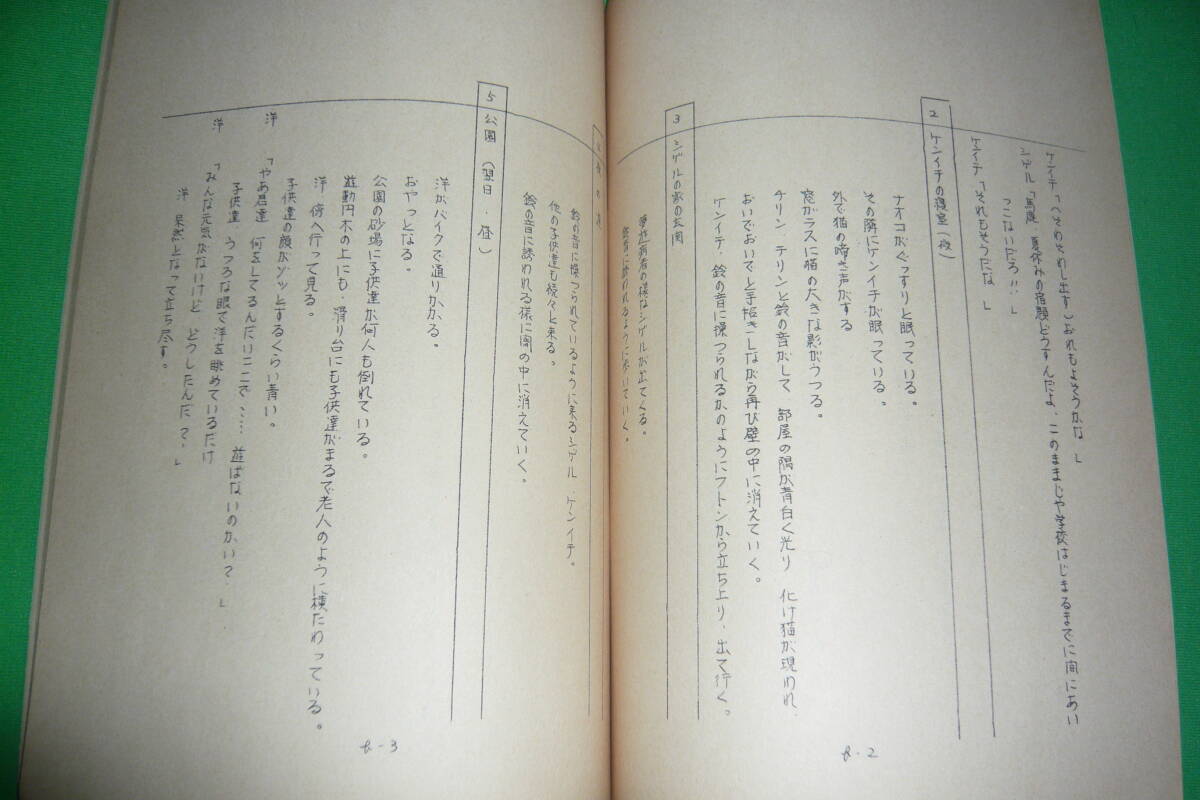 ケンイチ「(べそかそわし出す)おれもよそうかな」
シゲル「馬鹿 夏休みの宿題どうすんだよ、このままじゃ学校はじまるまでに間にあい
っこないだろ!!」
ケンイチ「それもそうだな」
2 ケンイチの寝室(夜)
ナオコがぐっすりと眠っている。
その隣にケンイチが眠っている。
外で猫の啼き声がする
窓ガラスに猫の大きな影がうつる。
チリン、チリンと鈴の音がして、部屋の隅が青白く光り 化け猫が現われ
おいでおいでと手招きしながら再び壁の中に消えていく。
ケンイチ、鈴の音に操つられるかのようにフトンから立ち上り、出て行く。
3 シゲルの家の玄関
夢遊病者の様なシゲルが出てくる。
鈴音に誘われるように歩いていく。
鈴の音に操つられているように来るシゲル、ケンイチ。
他の子供達も続々と来る。
鈴の音に誘われる様に闇の中に消えていく。
5 公園(翌日・昼)
洋がバイクで通りかかる。
おやっとなる。
公園の砂場に子供達が何人も倒れている。
遊動円木の上にも、滑り台にも子供達がまるで老人のように横たわっている。
洋 傍へ行って見る。
子供達の顔がゾッとするくらい青い。
洋 「やあ君達 何をしてるんだいここで…… 遊ばないのかい?」
子供達 うつろな眼で洋を眺めているだけ
洋 「みんな元気がないけど どうしたんだ?」
洋 呆然となって立ち尽す。
k-2
k-3